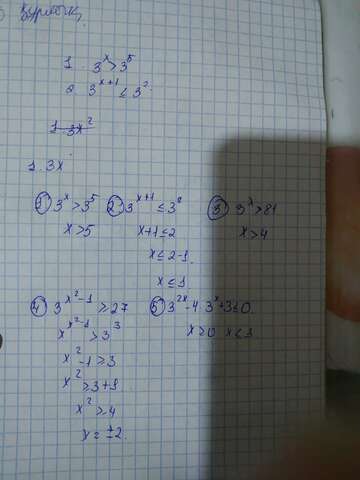 1. 3^x > 3^5
2. 3^{x+1} ≤ 3^2
1. 3x^2
1. 3x
① 3^x > 3^5 ② 3^{x+1} ≤ 3^2 ③ 3^x > 81
x > 5 x+1 ≤ 2 x > 4
x ≤ 2-1
x ≤ 1
④ 3^{x^2-1} ≥ 27 ⑤ 3^{2x} - 4 · 3^x + 3 ≤ 0
x^{x^2-1} ≥ 3^3 x > 0 x < 1
x^2 - 1 ≥ 3
x^2 ≥ 3+1
x^2 ≥ 4
x = ± 2